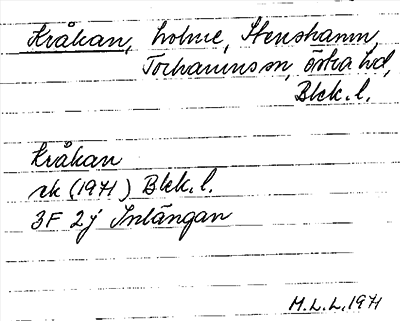 Kråkan, holme, Stenshamn,
Torhamns sn, östra hd,
Blek. l.
Kråkan
rk (1971) Blek. l.
3F 2j Inlängan
M.L.L. 1971